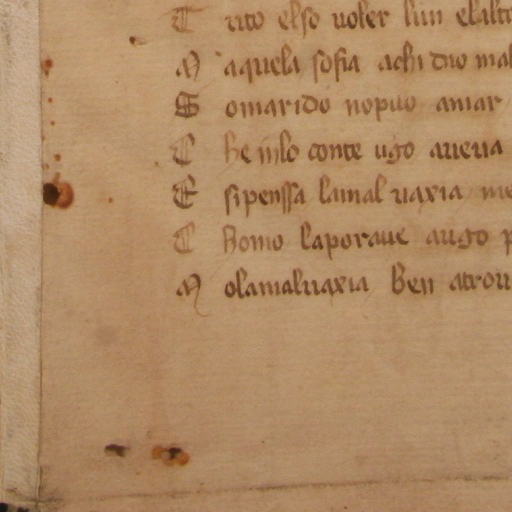 T uto elso uoler lun elalt
M aquela sofia achi dio mal
S omarido nopuo amar
C he inlo conte ugo aueua
E sipenssa lamal uaxia me
C homo laporaue augo p
M olamaluaxia ben atrou